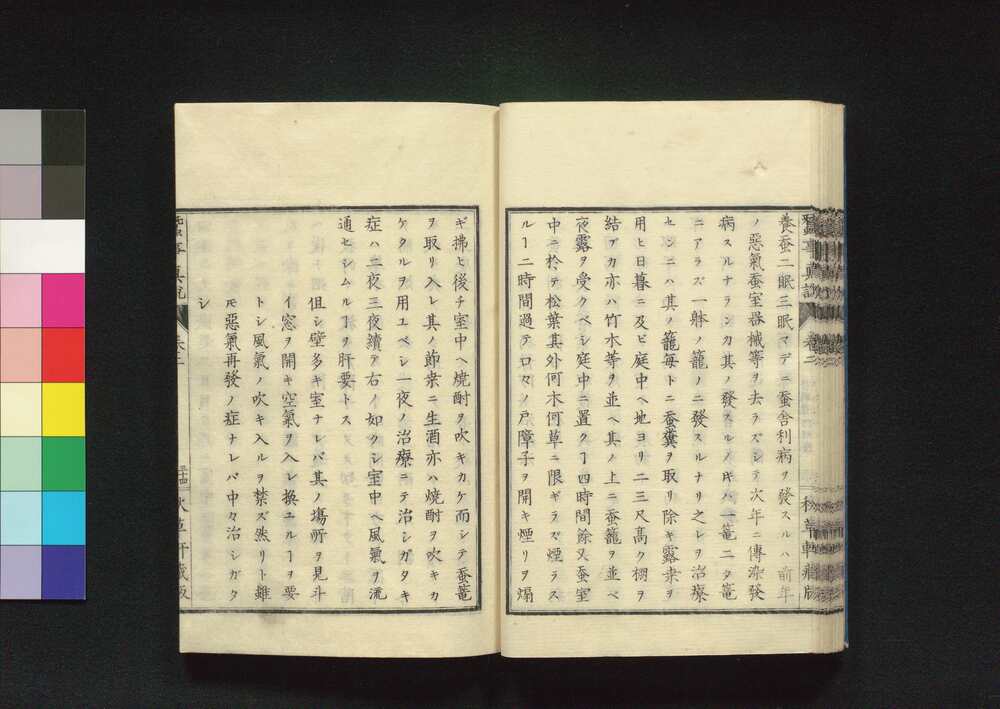 養蚕二眠三眠マデニ蚕舎利病ヲ發スルハ前年
ノ惡氣蚕室器械等ヲ去ラズシテ次年ニ傳染發
病スルナランカ其ノ發スルノ氏ハ一篭二タ篭
ニアラズ一躰ノ篭ノニ發スルナリ之レヲ治療
センニハ其ノ籠毎トニ蚕糞ヲ取リ除キ露桒ヲ
用ヒ日暮ニ及ビ庭中ヘ地ヨリ二三尺高ク棚ヲ
結ブカ亦ハ竹木等ヲ並ヘ其ノ上ニ蚕籠ヲ並ベ
夜露ヲ受クベシ庭中ニ置クヿ四時間餘又蚕室
中ニ於テ松葉其外何木何草ニ限ギラズ煙ラス
ルヿ二時間過テロ々ノ戸障子ヲ開キ煙リヲ煽
ギ拂ヒ後チ室中ヘ焼酎ヲ吹キカケ而シテ蚕篭
ヲ取リ入レ其ノ節桒ニ生酒亦ハ焼酎ヲ吹キカ
ケタルヲ用ユベシ一夜ノ治療ニテ治シガタキ
症ハ二夜三夜續テ右ノ如クシ室中ヘ風氣ヲ流
通セシムルヿヲ肝要トス
但シ壁多キ室ナレバ其ノ塲所ヲ見斗
イ窓ヲ開キ空氣ヲ入レ換ユルヿヲ要
トシ風氣ノ吹キ入ルヲ禁ズ然リト雖
モ惡氣再發ノ症ナレバ中々治シガタ
シ